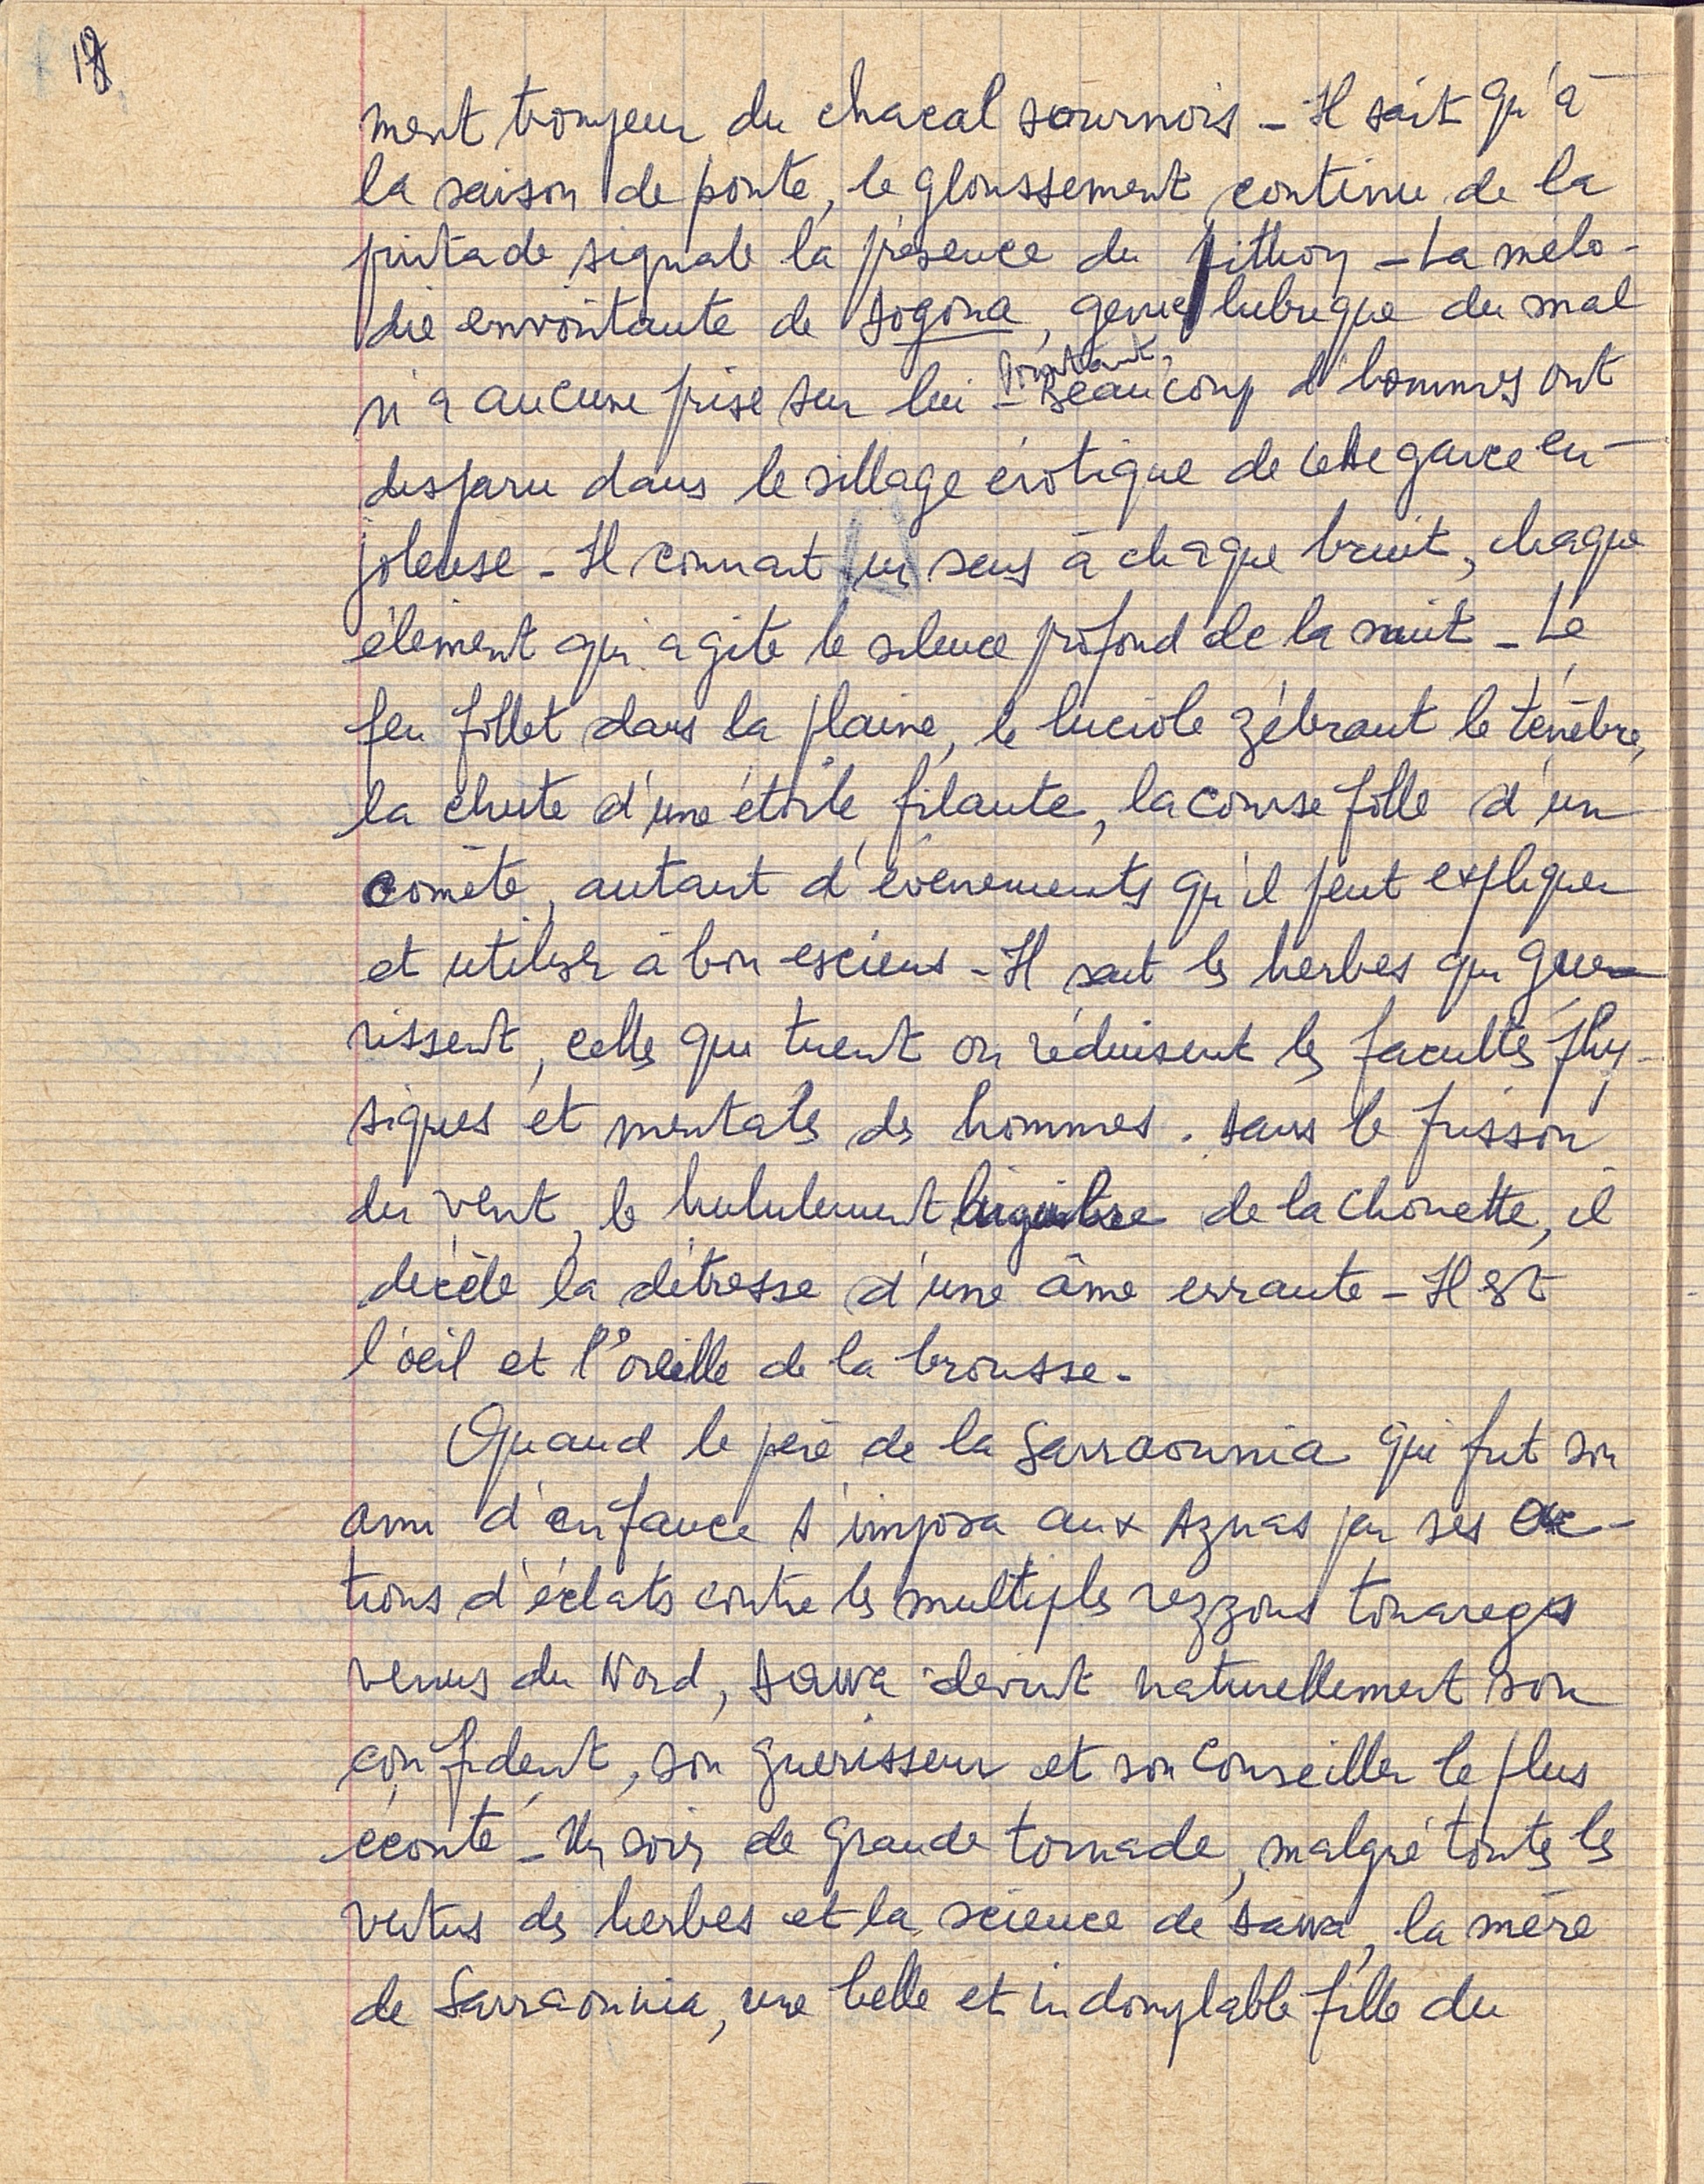 17
ment trompeur du chacal sournois - Il sait qu'à
la saison de ponte, le gloussement continu de la
pintade signale la présence du pithon - La mélo-
die envoûtante de sogona, génie lubrique du mal
n'a aucune prise sur lui - Pourtant, Beaucoup d'hommes ont
disparu dans le sillage érotique de cette garce en-
joleuse - Il connait un sens à chaque bruit, chaque
élément qui agite le silence profond de la nuit - Le
feu follet dans la plaine, le luciole zébrant le ténèbre,
la chute d'une étoile filante, la course folle d'un
comète, autant d'évènements qu'il peut expliquer
et utiliser à bon esciens - Il sait les herbes qui gué-
rissent, celles qui tuent ou réduisent les facultés phy-
siques et mentales des hommes. dans le frisson
du vent, le hululement lugubre de la chouette, il
décèle la détresse d'une âme errante - Il est
l'œil et l'oreille de la brousse.
Quand le père de la Sarraounia qui fut son
ami d'enfance s'imposa aux Aznas par ses ac-
tions d'éclats contre les multiples rezzous touaregs
venus du Nord, Dawa devint naturellement son
confident, son guérisseur et son conseiller le plus
écouté - Un soir de grande tornade, malgré toutes les
vertus des herbes et la science de Dawa, la mère
de Sarraounia, une belle et indomptable fille du